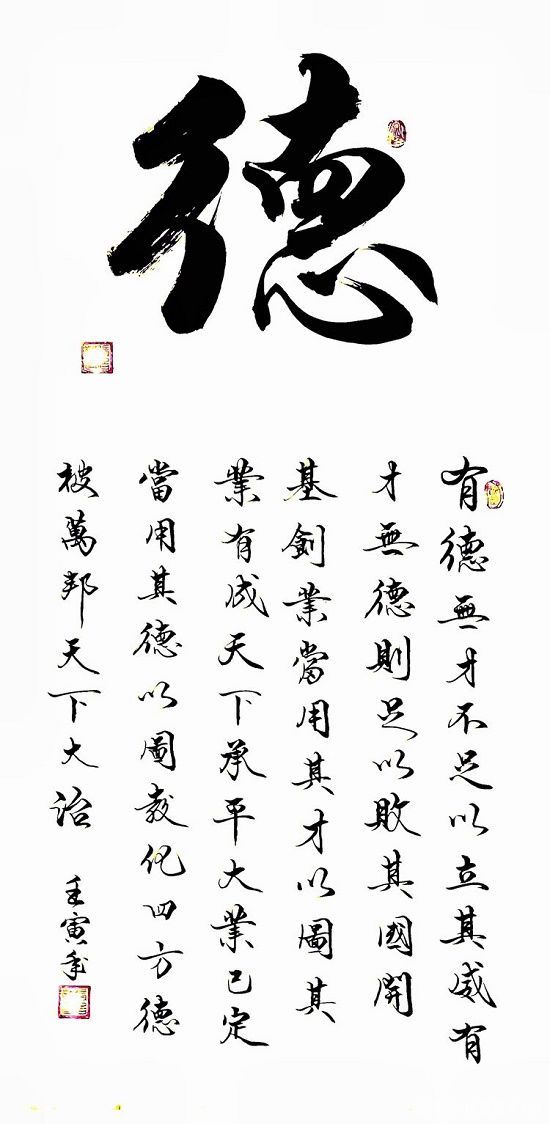 德
有德無才不足以立其威有
才無德則足以敗其國開
基創業當用其才以圖其
業有成天下承平大業已定
當用其德以圖教化四方德
被萬邦天下大治
壬寅年